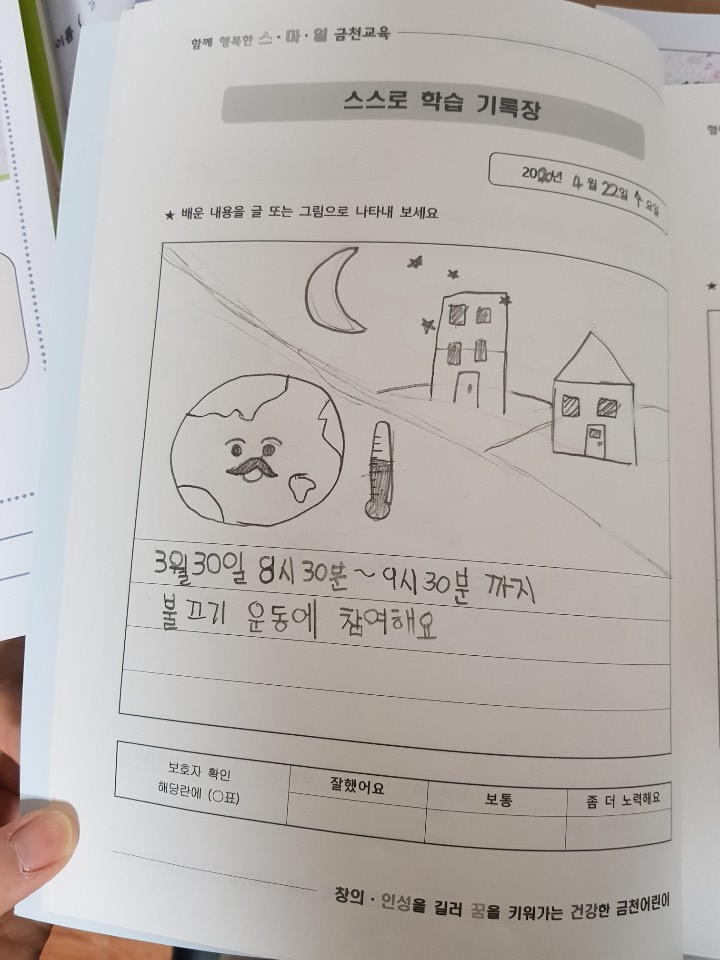 함께 행복한 스·마·일 금천교육
스스로 학습 기록장
2020년 4월 22일 수요일
★ 배운 내용을 글 또는 그림으로 나타내 보세요
3월30일 8시 30분~9시30분 까지
불끄기 운동에 참여해요
보호자 확인
해당란에 (○표)
잘했어요
보통
좀 더 노력해요
창의·인성을 길러 꿈을 키워가는 건강한 금천어린이
이름